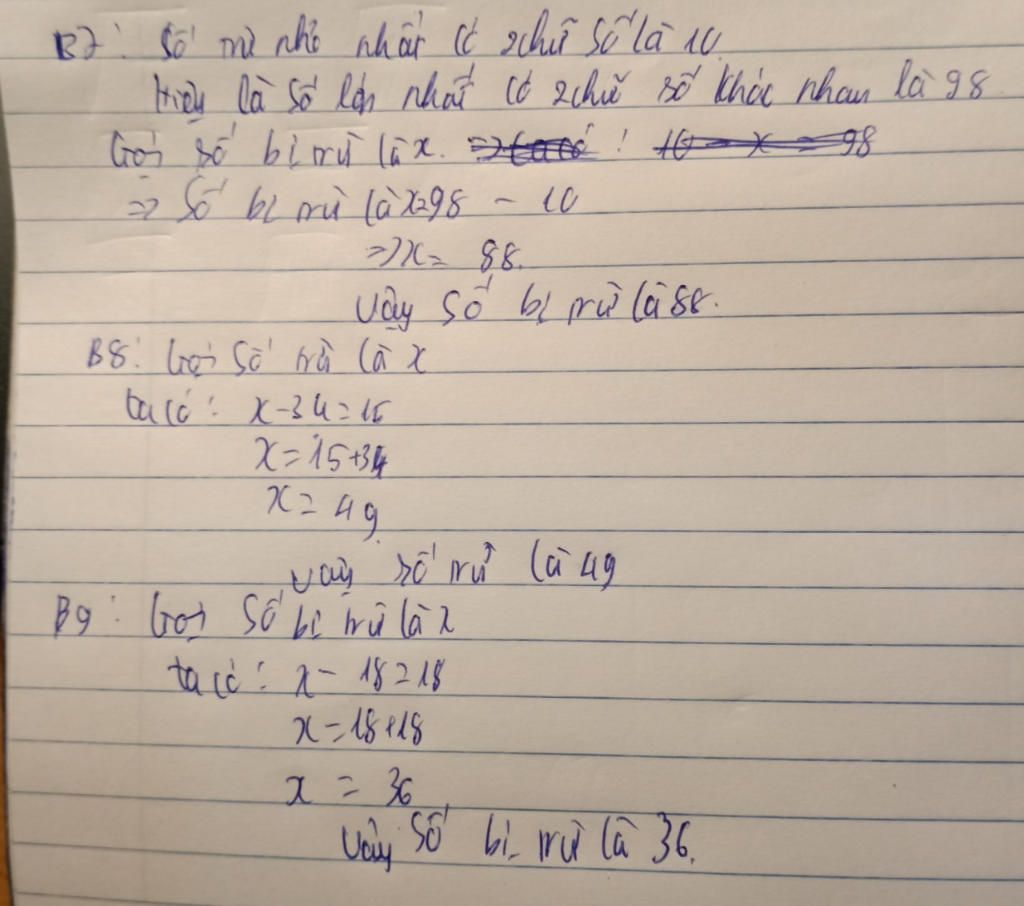 B7: Số trừ nhỏ nhất có 2 chữ số là 10.
Hiệu là số lớn nhất có 2 chữ số khác nhau là 98
Gọi số bị trừ là x. => ta có: 10 - x = 98
=> Số bị trừ là x = 98 - 10
=> x = 88.
Vậy số bị trừ là 88.
B8: Gọi số trừ là x
ta có: x - 34 = 15
x = 15 + 34
x = 49
Vậy số trừ là 49
B9: Gọi số bị trừ là x
ta có: x - 18 = 18
x = 18 + 18
x = 36
Vậy số bị trừ là 36.